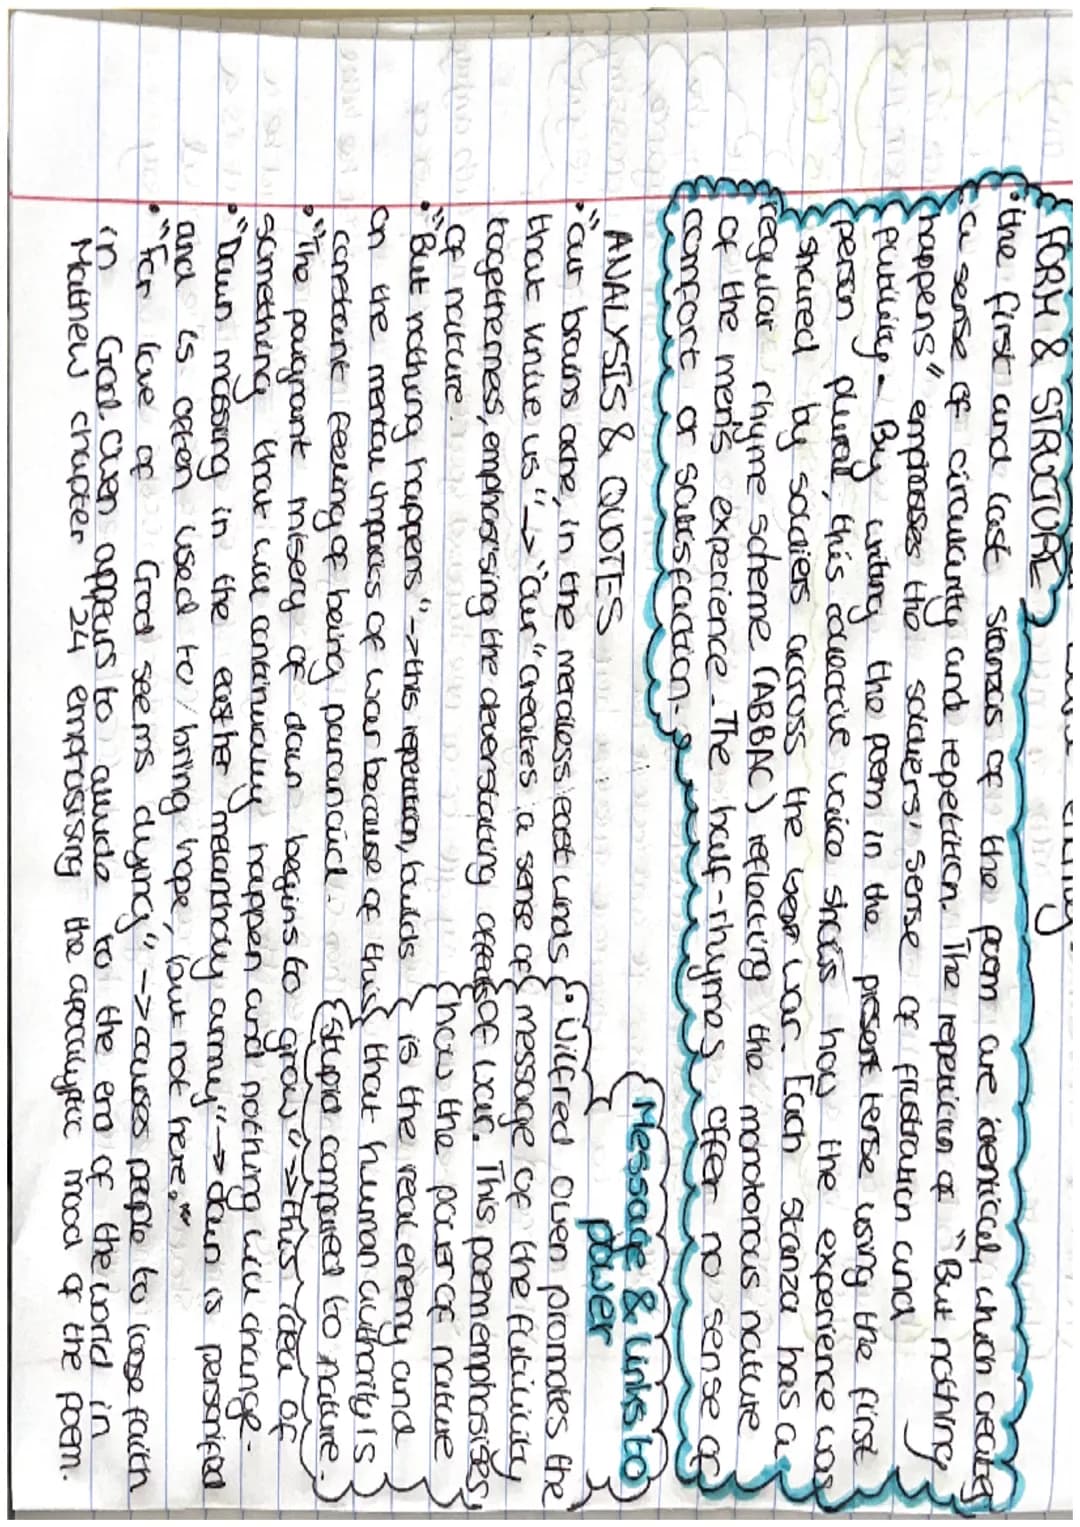 FORM & STRUCTURE
• the first and last stanzas of the poem are identical, which creates
a sense of circularity and repetition. The repetition of "But nothing
happens" emphases the soldiers' sense of frustration and
futility. By writing the poem in the present tense using the first
person plural, this collective voice shows how the experience was
shared by soldiers across the war. Each stanza has a
regular rhyme scheme (ABBAC) reflecting the monotonous nature
of the men's experience. The half-rhymes offer no sense of
comfort or satisfaction.
Message & links to
power
• Wilfred Owen promotes the
message of the futility
of war. This poem emphasises
how the power of nature
is the real enemy and
that human authority is
stupid compared to nature.
ANALYSIS & QUOTES
• "our brains ache, in the merciless east winds
that knive us" -> "our" creates a sense of
togetherness, emphasising the devastating effects
of nature.
• "But nothing happens" -> this repetition, builds
on the mental impacts of war because of this
constant feeling of being paranoid.
• "The poignant misery of dawn begins to grow" -> this idea of
something that will continually happen and nothing will change.
• "Dawn massing in the east her melancholy army" -> dawn is personified
and is often used to bring hope, but not here.
• "For love of God seems dying" -> causes people to loose faith
in God. Owen appears to allude to the end of the world in
Matthew chapter 24 emphasising the apocalyptic mood of the poem.